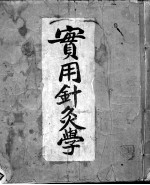 實用針灸學